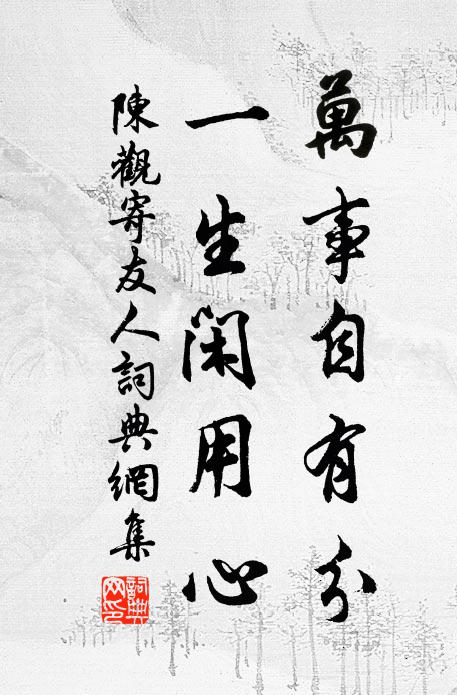 萬事自有分
一生閑用心
陳觀寄友人詞典網集
詞典网印